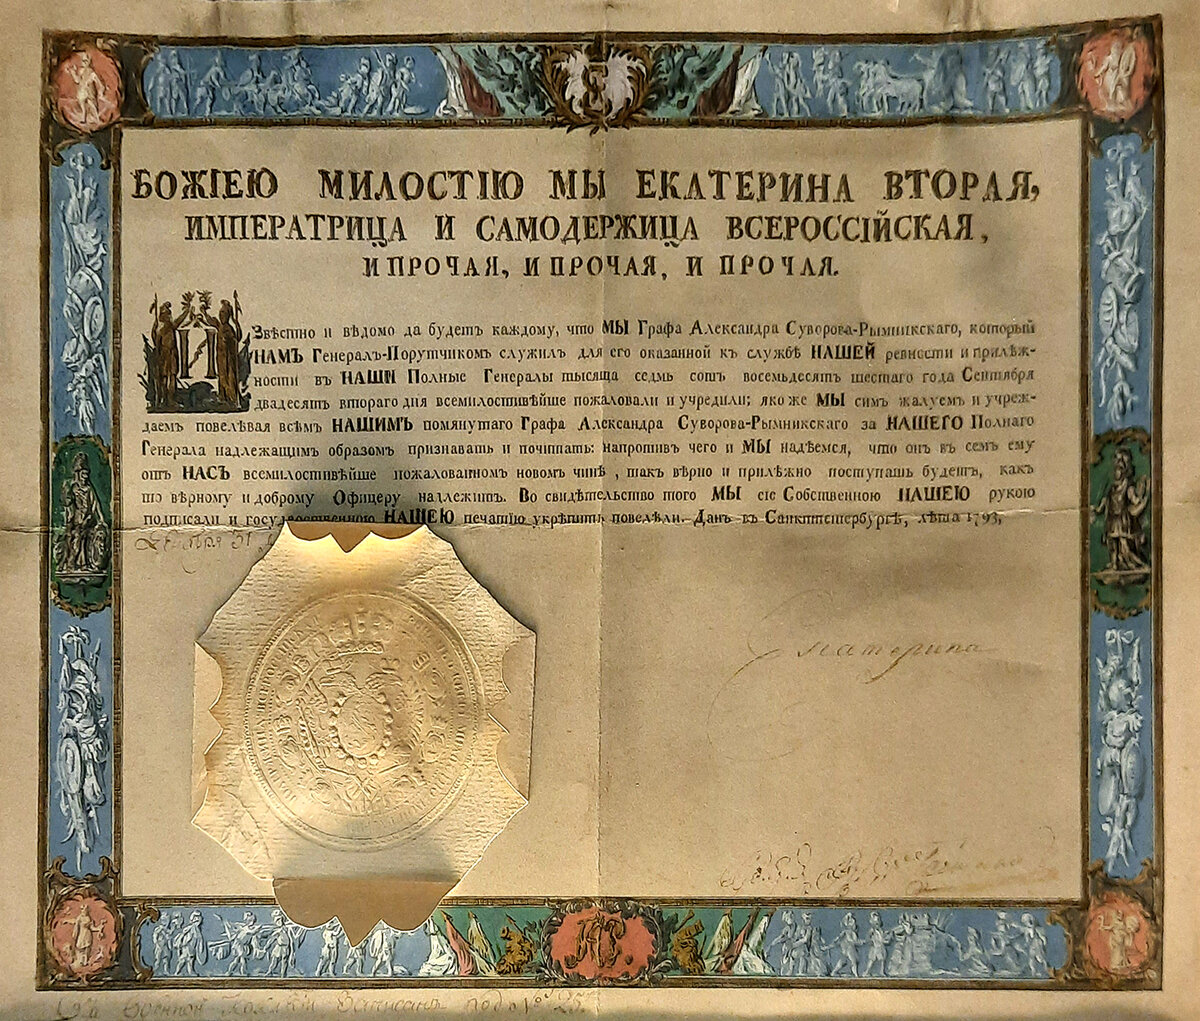 БОЖІЕЮ МИЛОСТІЮ МЫ ЕКАТЕРИНА ВТОРАЯ,
ИМПЕРАТРИЦА И САМОДЕРЖИЦА ВСЕРОССІЙСКАЯ,
И ПРОЧАЯ, И ПРОЧАЯ, И ПРОЧАЯ.
ИЗвѣстно и вѣдомо да будетъ каждому, что МЫ Графа Александра Суворова-Рымникскаго, который
НАМЪ Генералъ-Порутчикомъ служилъ для его оказанной къ службѣ НАШЕЙ ревности и прилѣж-
ности въ НАШИ Полные Генералы тысяща седмь сотъ восемьдесятъ шестаго года Сентября
двадесятъ втораго дня всемилостивѣйше пожаловали и учредили; яко же МЫ симъ жалуемъ и учреж-
даемъ повелѣвая всѣмъ НАШИМЪ помянутаго Графа Александра Суворова-Рымникскаго за НАШЕГО Полнаго
Генерала надлежащимъ образомъ признавать и почитать: напротивъ чего и МЫ надѣемся, что онъ въ семъ ему
отъ НАСЪ всемилостивѣйше пожалованномъ новомъ чинѣ, такъ вѣрно и прилѣжно поступать будетъ, какъ
то вѣрному и доброму Офицеру надлежитъ. Во свидѣтельство того МЫ сіе Собственною НАШЕЮ рукою
подписали и государственною НАШЕЮ печатію укрѣпить повелѣли. Данъ въ Санктпетербургѣ, лѣта 1793,
Екатерина
Въ Военной Коллегіи Записанъ подъ №